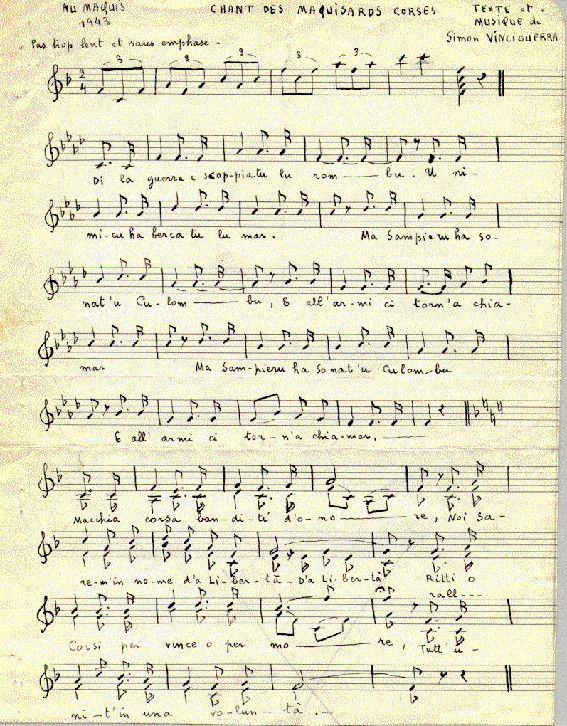 AU MAQUIS CHANT DES MAQUISARDS CORSES TEXTE et
1943 MUSIQUE de
Pas trop lent et sans emphase. Simon VINCIGUERRA
3 3 3 3
2
4
Di la guerra è scoppiatu lu rom — bu. U ni-
mi-cu ha bercatu lu mar. Ma Sampieru ha so-
nat'u Cu-lom — bu, E all'ar-mi ci torn'a chia-
mar Ma Sam-pieru ha sonat'u Culom-bu
E all armi ci tor-n'a chia-mar.
Macchia corsa ban-di-ti d'o-no — re, Noi Sa-
re-min no-me d'a Li-ber-tà - D'a Li-ber-tà Ritti o
rall---
Corsi per vince o per mo — re, Tutt'u-
ni-t'in una vo-lun-tà.